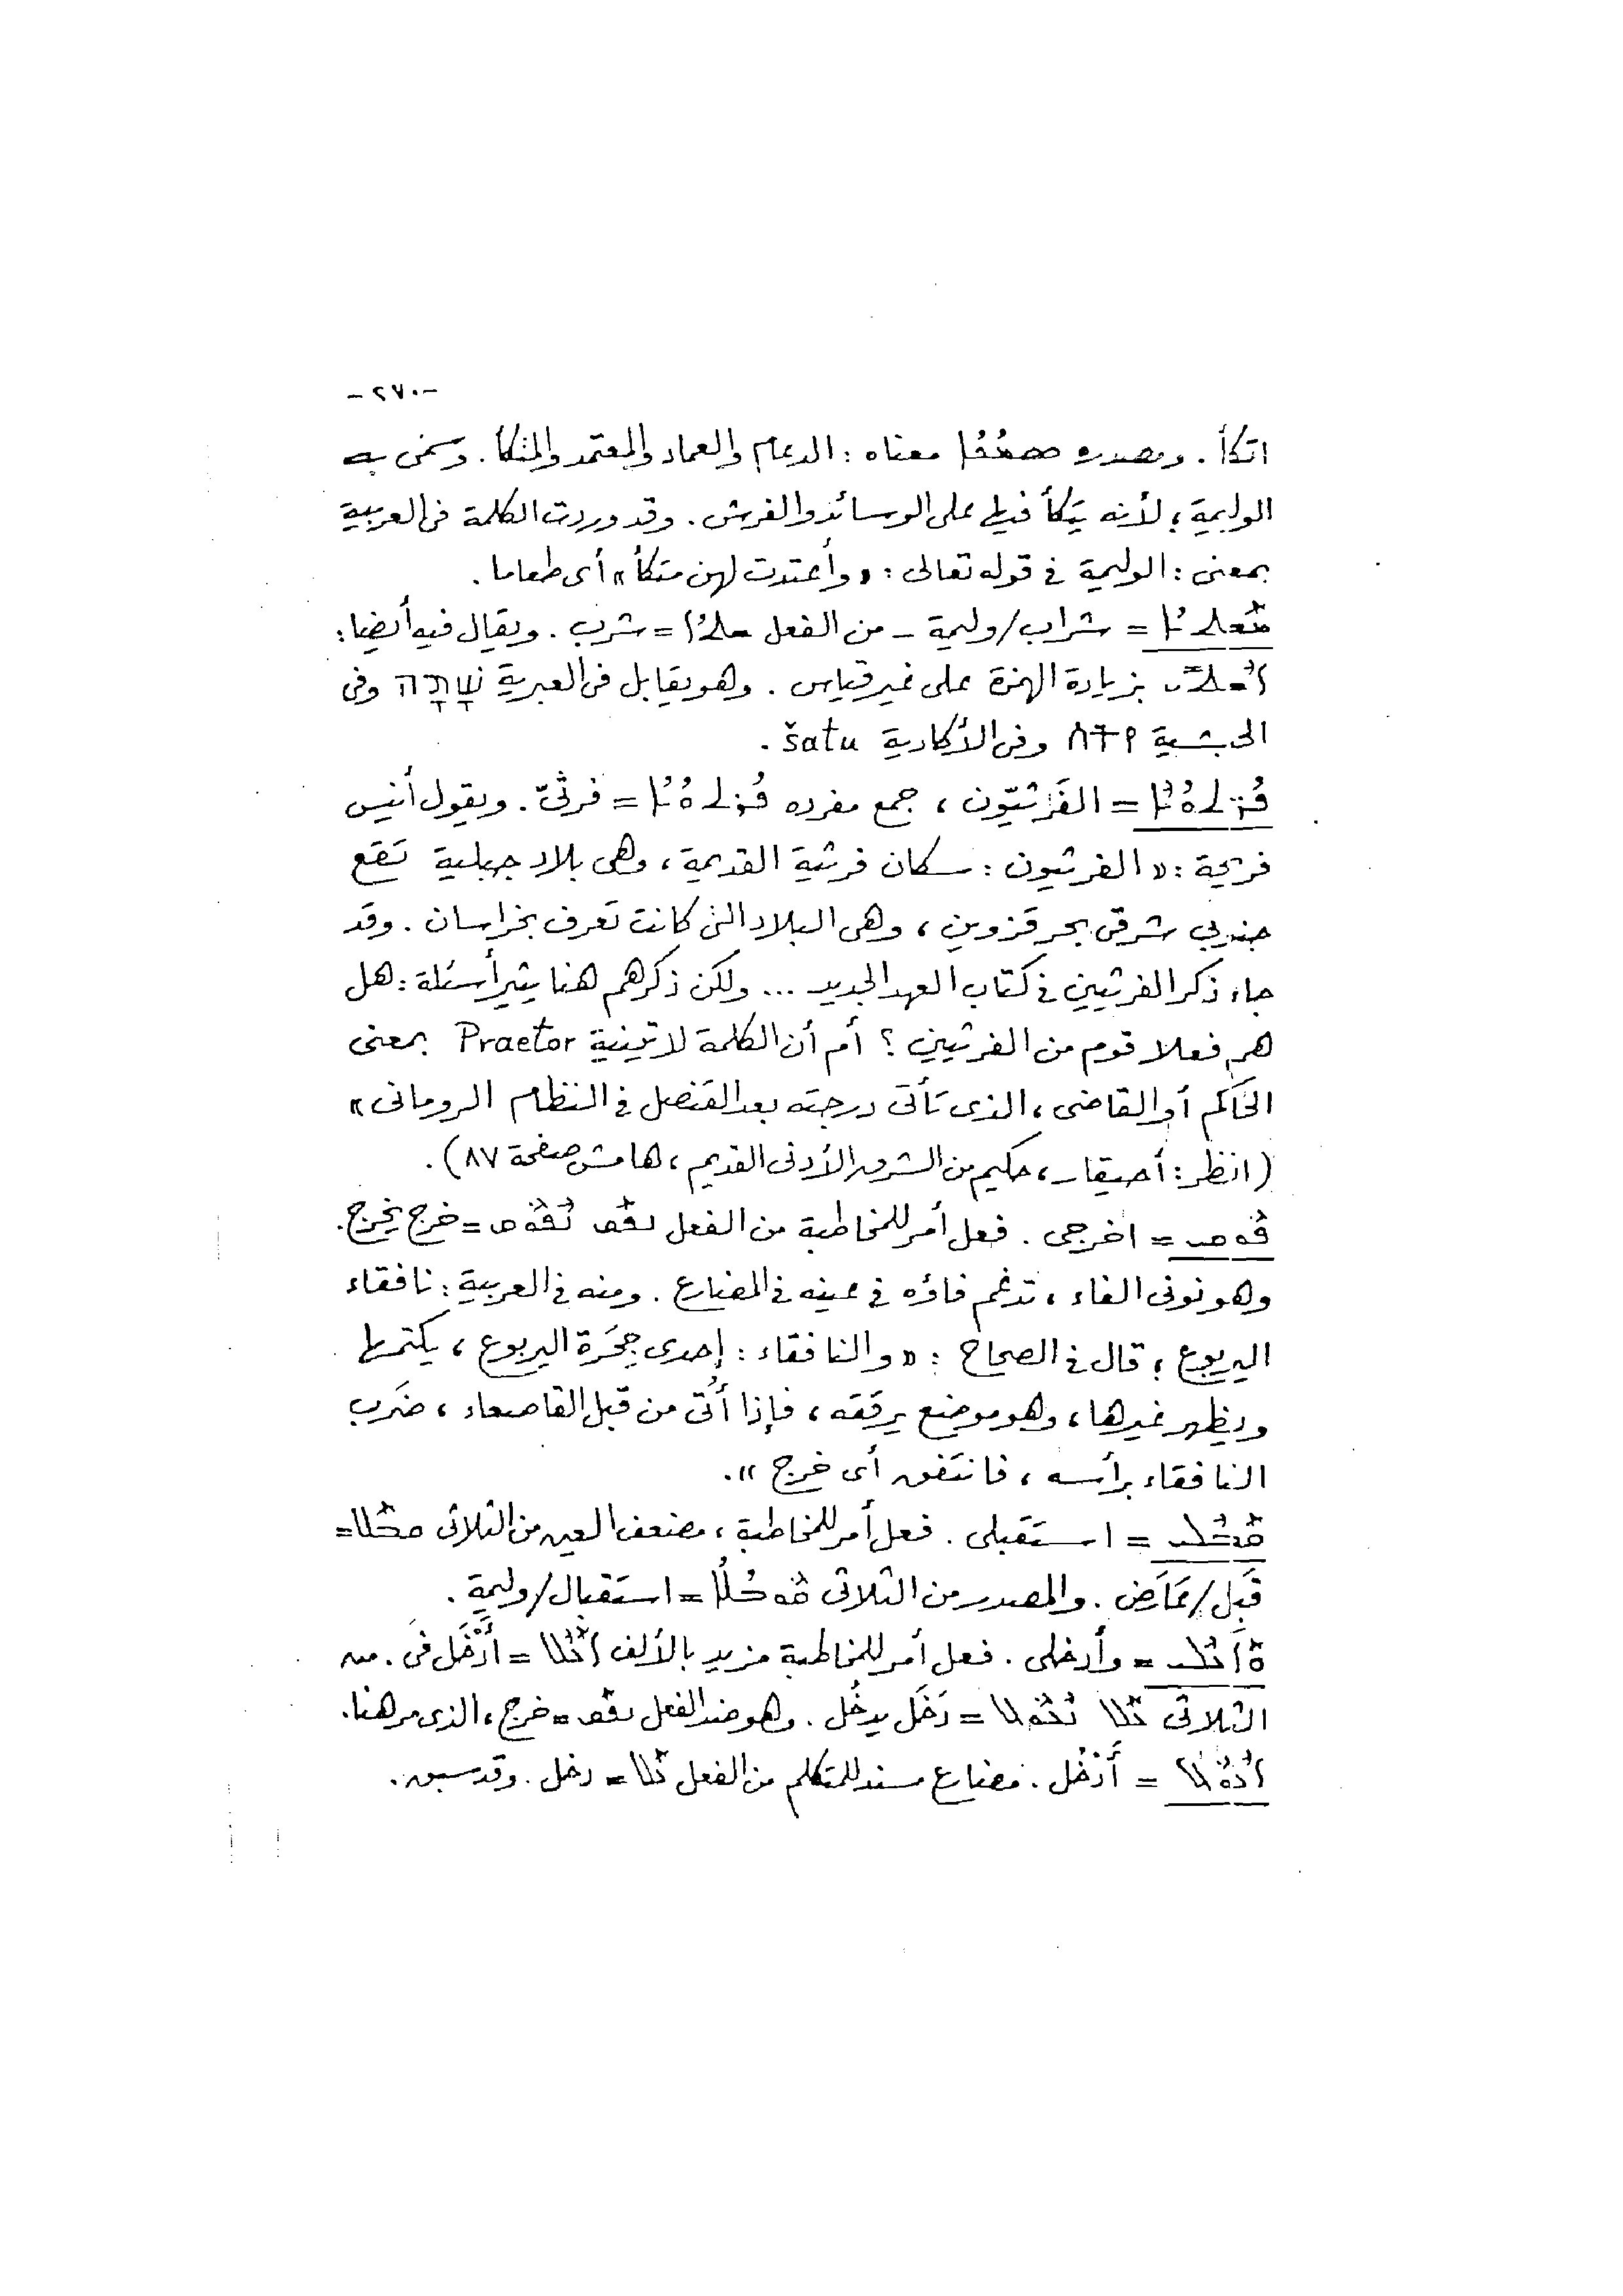 -٢٧٠-
اتكأ. ومصدره ܣܡܟܐ معناه: الدعام والعماد والمعتمد والمتكأ. وسمى به
الوليمة؛ لأنه يتكأ فيها على الوسائد والفرش. وقد وردت الكلمة فى العربية
بمعنى: الوليمة فى قوله تعالى: «وأعتدت لهن متكأ» أى طعاما.
ܡܫܬܝܐ = شراب/وليمة - من الفعل ܫܬܐ = شرب. ويقال فيه أيضا:
ܐܫܬܝ بزيادة الهمزة على غير قياس. وهو يقابل فى العبرية שָׁתָה وفى
الحبشية ሰትየ وفى الأكادية šatu.
ܦܪ̈ܬܘܝܐ = الفَرْثيّون، جمع مفرده ܦܪܬܘܝܐ = فرثىّ. ويقول أنيس
فريحة: «الفرثيون: سكان فرثية القديمة، وهى بلاد جبلية تقع
جنوبي شرقى بحر قزوين، وهى البلاد التى كانت تعرف بخراسان. وقد
جاء ذكر الفرثيين فى كتاب العهد الجديد ... ولكن ذكرهم هنا يثير أسئلة: هل
هم فعلا قوم من الفرثيين؟ أم أن الكلمة لاتينية Praetor بمعنى
الحاكم أو القاضى، الذى تأتى درجته بعد القنصل فى النظام الرومانى»
(انظر: أحيقار، حكيم من الشرق الأدنى القديم، هامش صفحة ٨٧).
ܦܘܩܝ = اخرجى. فعل أمر للمخاطبة من الفعل ܢܦܩ ܢܦܘܩ = خرج يخرج.
وهو نونى الفاء، تدغم فاؤه فى عينه فى المضارع. ومنه فى العربية: نافقاء
اليربوع؛ قال فى الصحاح: «والنافقاء: إحدى جِحَرة اليربوع، يكتمها
ويظهر غيرها، وهو موضع يرققه، فإذا أُتى من قبل القاصعاء، ضَرب
النافقاء برأسه، فانتفق أى خرج».
ܩܒܠܝ = استقبلى. فعل أمر للمخاطبة، مضعف العين من الثلاثى ܩܒܠ =
قَبِل/عَارَض. والمصدر من الثلاثى ܩܘܒܠܐ = استقبال/وليمة.
ܘܐܥܠܝ = وأدخلى. فعل أمر للمخاطبة مزيد بالألف ܐܥܠ = أَدْخَل فى. منه
الثلاثى ܥܠ ܢܥܘܠ = دَخَل يدخُل. وهو ضد الفعل ܢܦܩ = خرج، الذى مر هنا.
ܐܥܘܠ = أَدْخُل. مضارع مسند للمتكلم من الفعل ܥܠ = دخل. وقد سبق.